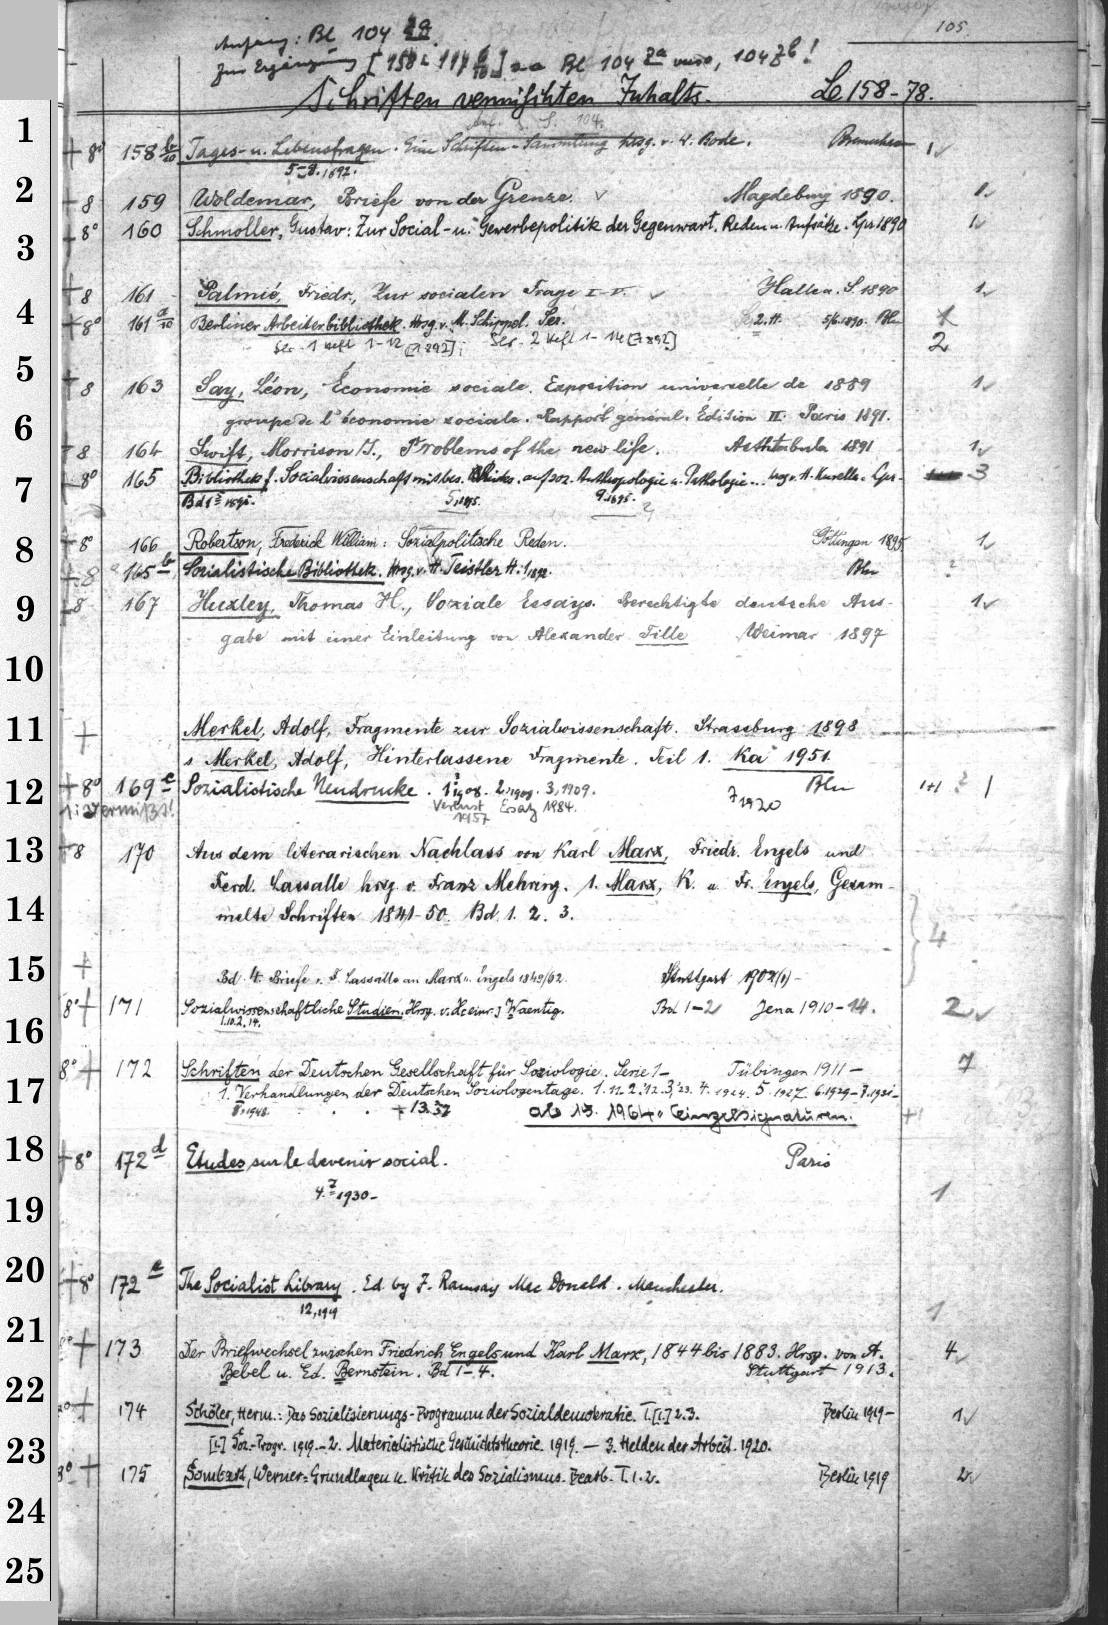 105.
Anfang: Bl 104
Zur Ergänzung [158 117] Bl 104 za verso, 104 zb!
Schriften vermischten Inhalts. Le 158-78.
1
+ 8° 158 b/10 Tages- u. Lebensfragen. Eine Schriften-Sammlung hrsg. v. W. Bode. 1
5-8. 1892.
2
+ 8 159 Woldemar, Briefe von der Grenze. Magdeburg 1890. 1
+ 8° 160 Schmoller, Gustav: Zur Social- u. Gewerbepolitik der Gegenwart. Reden u. Aufsätze. Lpz 1890 1
3
+ 8 161 Palmié, Friedr., Zur socialen Frage I-V. Halle a. S. 1890 1
4
+ 8° 161 a/10 Berliner Arbeiterbibliothek. Hrsg. v. M. Schippel. Ser. 2. H. 5/6. 1890. Bln
Ser. 1 Heft 1-12 [1892]; Ser. 2 Heft 1-14 [1892] 2
5
+ 8 163 Say, Léon, Économie sociale. Exposition universelle de 1889 1
groupe de l'économie sociale. Rapport général. Édition II. Paris 1891.
6
+ 8 164 Swift, Morrison I., Problems of the new life. Ashtabula 1891 1
7
+ 8° 165 Bibliothek f. Socialwissenschaft mit bes. Rücks. auf soz. Anthropologie u. Pathologie... hrsg v. H. Kurella. Lpz. 3
Bd 1 1895. 5, 1895. 9. 1895.
8
+ 8° 166 Robertson, Frederick William: Sozialpolitische Reden. Göttingen 1895 1
+ 8 165 b Sozialistische Bibliothek. Hrsg. v. H. Teistler H. 1, 1892. Bln ?
9
+ 8 167 Huxley, Thomas H., Soziale Essays. Berechtigte deutsche Aus-
gabe mit einer Einleitung von Alexander Tille Weimar 1897 1
10
11
+ Merkel, Adolf, Fragmente zur Sozialwissenschaft. Strassburg 1898
s Merkel, Adolf, Hinterlassene Fragmente. Teil 1. Ka 1951
12
+ 8° 169 e Sozialistische Neudrucke. 1, 1908. 2, 1908. 3, 1909. Bln 1+1 ? 1
1: Vermißt! Verlust 1957 Ersatz 1984. 7 1920
13
+ 8 170 Aus dem literarischen Nachlass von Karl Marx, Friedr. Engels und
Ferd. Lassalle hrsg. v. Franz Mehring. 1. Marx, K. u Fr. Engels, Gesam-
14
melte Schriften 1841-50. Bd. 1. 2. 3. 4
15
+ Bd. 4. Briefe v. F. Lassalle an Marx u. Engels 1849/62. Stuttgart 1902(1)-
8° + 171 Sozialwissenschaftliche Studien. Hrsg. v. H[einr.] Waentig. Bd 1-2 Jena 1910-14. 2
1.1912. 14.
16
8° + 172 Schriften der Deutschen Gesellschaft für Soziologie. Serie 1- Tübingen 1911- 7
17
1. Verhandlungen der Deutschen Soziologentage. 1. 11. 2. '12. 3. '23. 4. 1924. 5. 1927. 6. 1929- 7. 1931-
8, 1948. + 13. 57 ab 15. 1964: Einzelsignaturen. +1
18
+ 8° 172 d Etudes sur le devenir social. Paris
4. 7 1930- 1
19
20
+ 8° 172 e The Socialist Library. Ed. by J. Ramsay Mac Donald. Manchester.
12, 1919 1
21
8° + 173 Der Briefwechsel zwischen Friedrich Engels und Karl Marx, 1844 bis 1883. Hrsg. von A. 4
Bebel u. Ed. Bernstein. Bd 1-4. Stuttgart 1913.
22
8° + 174 Schöler, Herm.: Das Sozialisierungs-Programm der Sozialdemokratie. T. [1.] 2. 3. Berlin 1919- 1
23
[1.] Soz.-Progr. 1919.- 2. Materialistische Geschichtstheorie. 1919. - 3. Helden der Arbeit. 1920.
8° + 175 Sombart, Werner: Grundlagen u. Kritik des Sozialismus. Bearb. T. 1. 2. Berlin 1919 2
24
25